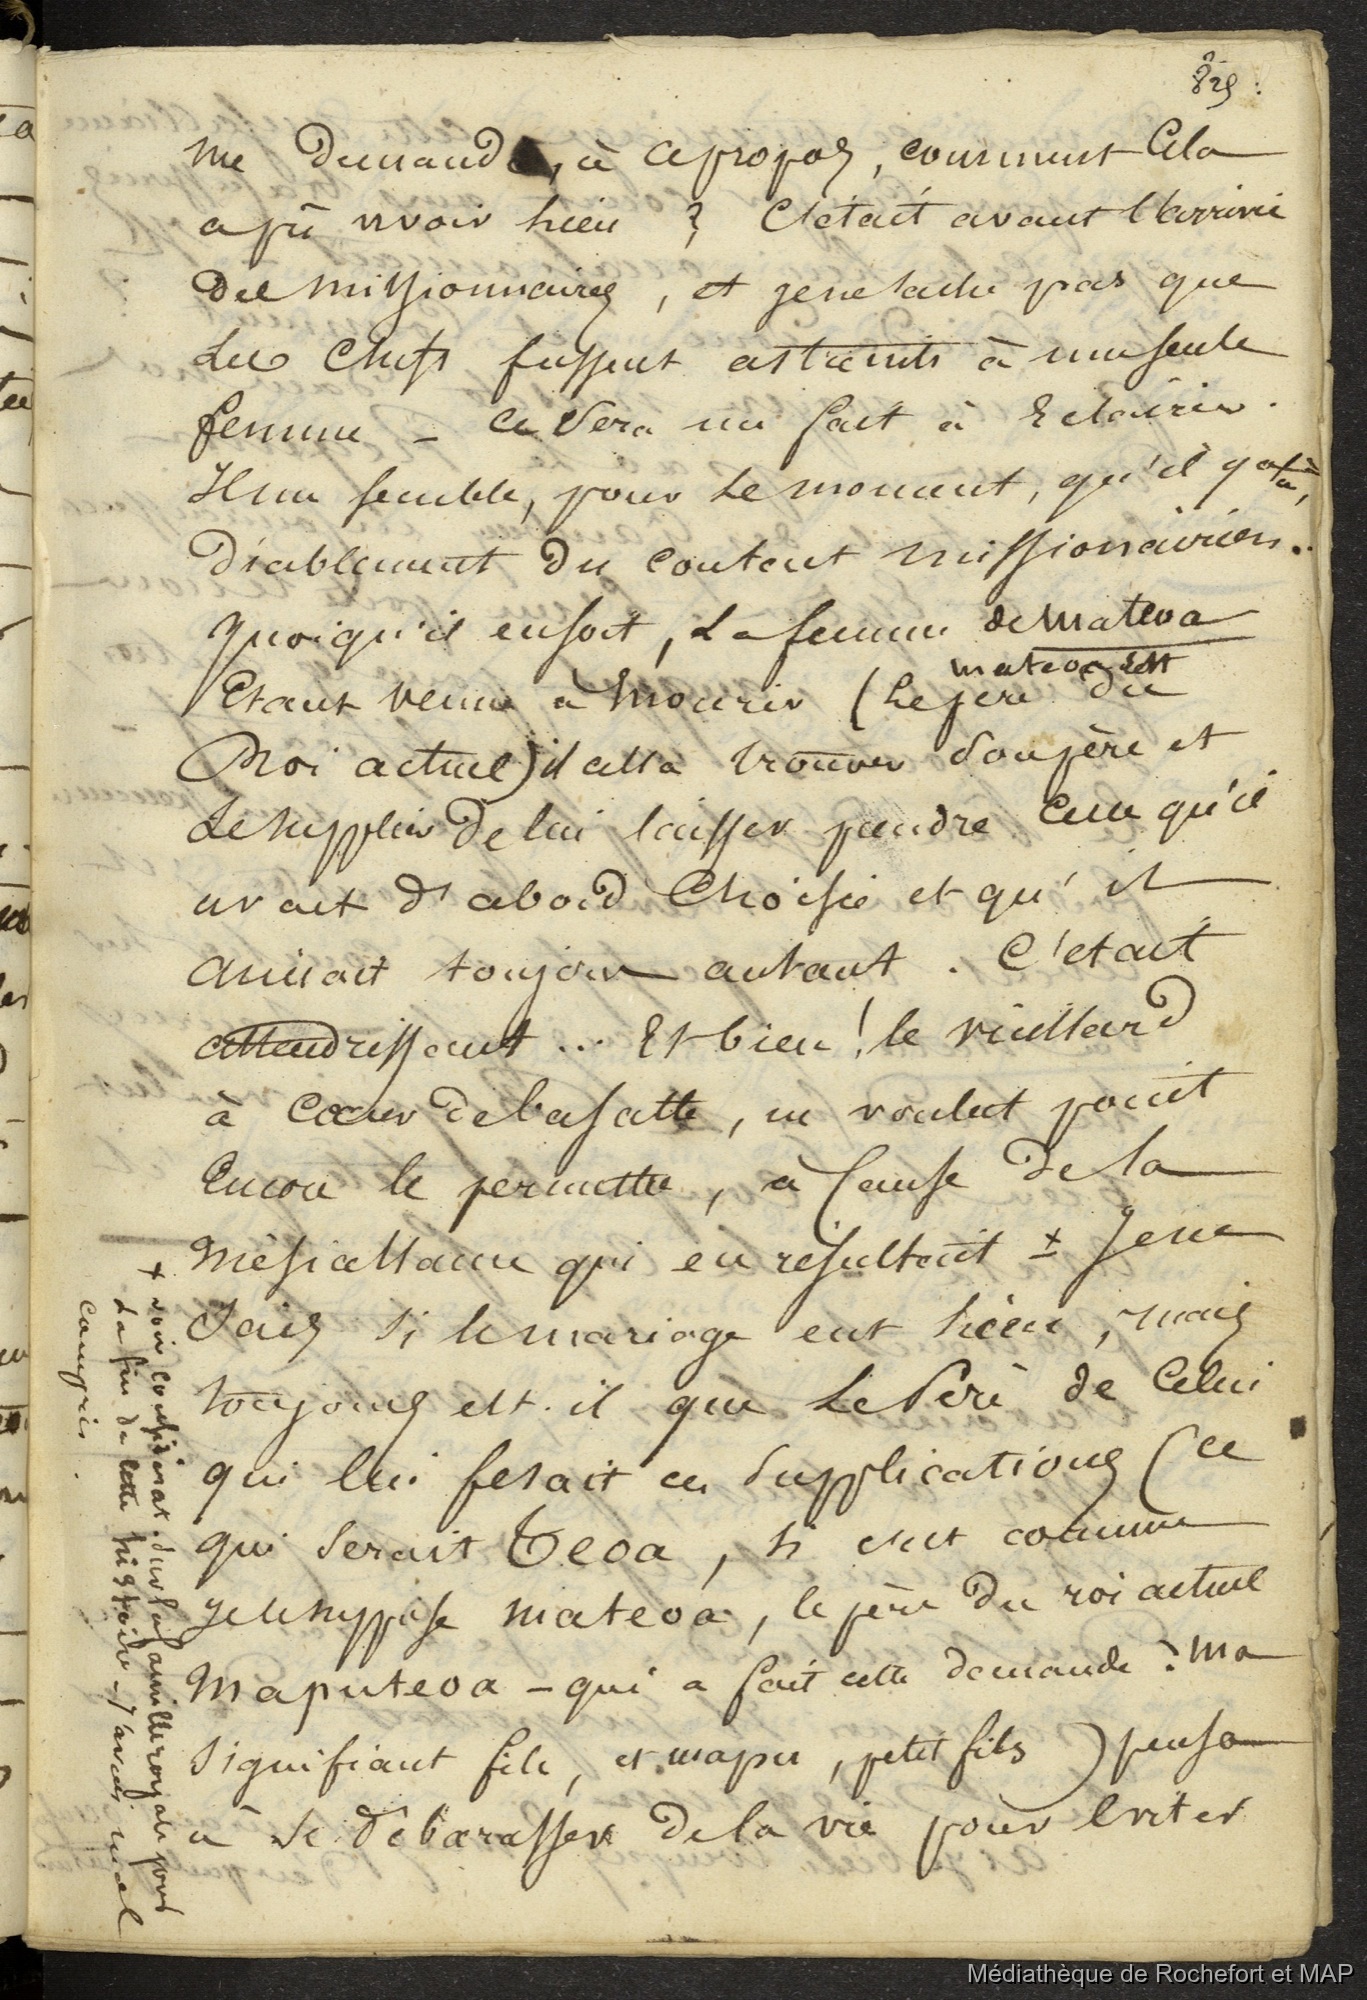 829.
me demande, à ce propos, comment Cela
a pû avoir lieu ? C'était avant l'arrivée
des missionnaires, et je ne sache pas que
Les Chefs fussent astreints à une seule
femme - Ce Sera un fait à Eclairir.
Il me semble, pour Le moment, qu'il y a là,
Diablement du contact missionairien.
Quoiqu'il en soit, La femme de Mateoa
Etant venue à Mourir (Le père du
mateoa est
Roi actuel) il alla trouver Son père et
Le supplier De lui laisser prendre Celle qu'il
avait d'abord Choisie et qu'il
aimait toujours autant. C'etait
attendrissant ... Et bien ! le vieillard
à Cœur de basalte, ne voulut point
Encore le permettre, à Cause De la
Mésiallance qui en résultait ± Je ne
Sais si le mariage eut lieu, mais
toujours est-il que Le Père de Celui
qui lui fesait ces Supplications (ce
qui Serait Teoa, si c'est comme
je le suppose Mateoa, le père Du roi actuel
Maputeoa - qui a fait cette demande : Ma
Signifiant fils, et mapu, petit fils) pensa
à Se Débarasser De la vie pour Eviter
+ voir Considérat. sur la famille royale pour
La fin De cette histoire - J'avais mal
compris.
Médiathèque de Rochefort et MAP